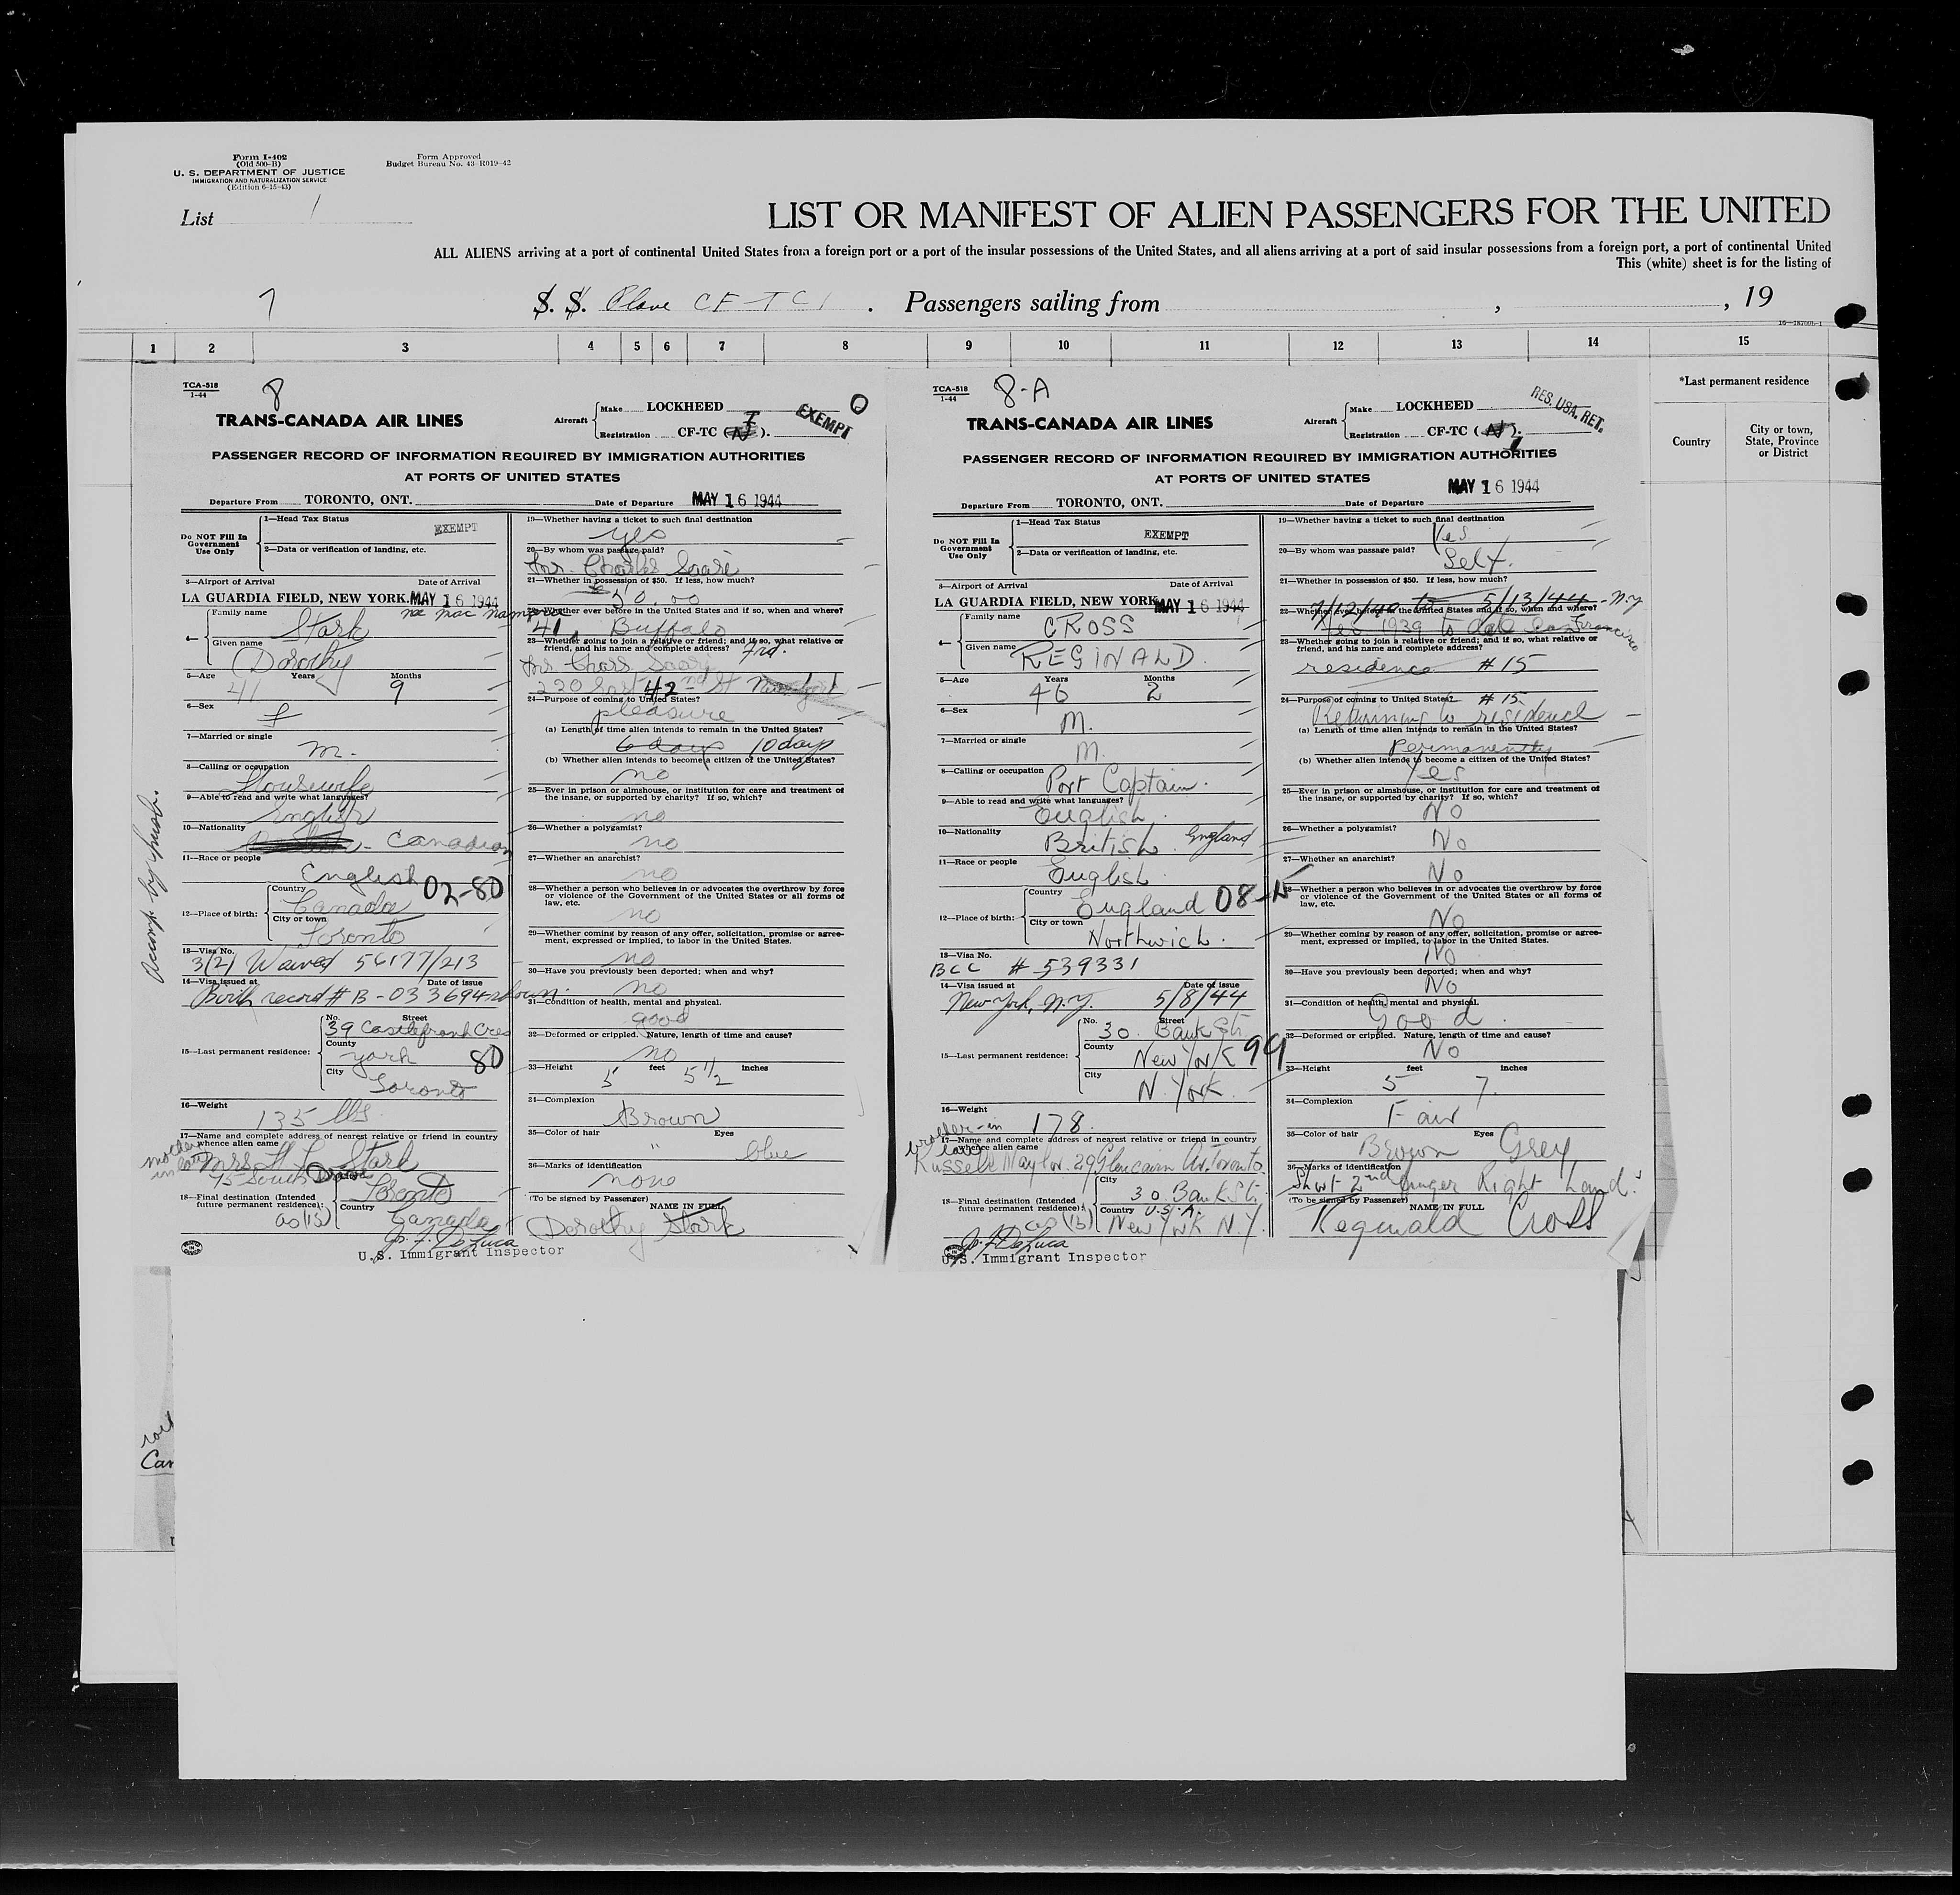 Form I-402
(Old 500-B)
U. S. DEPARTMENT OF JUSTICE
IMMIGRATION AND NATURALIZATION SERVICE
(Edition 6-15-43)
Form Approved
Budget Bureau No. 43-R019-42
List 1
LIST OR MANIFEST OF ALIEN PASSENGERS FOR THE UNITED
ALL ALIENS arriving at a port of continental United States from a foreign port or a port of the insular possessions of the United States, and all aliens arriving at a port of said insular possessions from a foreign port, a port of continental United
This (white) sheet is for the listing of
7
S. S. Plane CF-TCI . Passengers sailing from , , 19
1 2 3 4 5 6 7 8 9 10 11 12 13 14 15
*Last permanent residence
Country
City or town, State, Province or District
TCA-518
1-44
8
TRANS-CANADA AIR LINES
Aircraft
Make LOCKHEED
Registration CF-TC (N). I
EXEMPT
PASSENGER RECORD OF INFORMATION REQUIRED BY IMMIGRATION AUTHORITIES
AT PORTS OF UNITED STATES
Departure From TORONTO, ONT. Date of Departure MAY 16 1944
Do NOT Fill In Government Use Only
1—Head Tax Status EXEMPT
2—Data or verification of landing, etc.
3—Airport of Arrival Date of Arrival
LA GUARDIA FIELD, NEW YORK. MAY 16 1944
4— Family name Stark
Given name Dorothy
5—Age 41 Years 9 Months
6—Sex f
7—Married or single m.
8—Calling or occupation Housewife
9—Able to read and write what languages? English
10—Nationality - Canadian
11—Race or people English
12—Place of birth: Country Canada 02-80
City or town Toronto
13—Visa No. 3(2) Waived 56177/213
14—Visa issued at Date of issue
Birth record # B-033694 shown.
15—Last permanent residence: No. Street 39 Castlefrank Cres
County York 80
City Toronto
16—Weight 135 lbs.
17—Name and complete address of nearest relative or friend in country whence alien came
mother in law Mrs. Stark
95 South Drive
18—Final destination (Intended future permanent residence): Toronto
as (15) Country Canada
U.S. Immigrant Inspector
Accomp. by husb.
19—Whether having a ticket to such final destination
yes
20—By whom was passage paid?
Mr. Charles Saari
21—Whether in possession of $50. If less, how much?
50.00
22—Whether ever before in the United States and if so, when and where?
41, Buffalo
23—Whether going to join a relative or friend; and if so, what relative or friend, and his name and complete address? Frd.
Mr. Chas. Saari
220 East 42nd St New York
24—Purpose of coming to United States?
pleasure
(a) Length of time alien intends to remain in the United States?
6 days 10 days
(b) Whether alien intends to become a citizen of the United States?
no
25—Ever in prison or almshouse, or institution for care and treatment of the insane, or supported by charity? If so, which?
no
26—Whether a polygamist?
no
27—Whether an anarchist?
no
28—Whether a person who believes in or advocates the overthrow by force or violence of the Government of the United States or all forms of law, etc.
no
29—Whether coming by reason of any offer, solicitation, promise or agreement, expressed or implied, to labor in the United States.
no
30—Have you previously been deported; when and why?
no
31—Condition of health, mental and physical.
good
32—Deformed or crippled. Nature, length of time and cause?
no
33—Height 5 feet 5 1/2 inches
34—Complexion
Brown
35—Color of hair " Eyes blue
36—Marks of identification
none
(To be signed by Passenger) NAME IN FULL
Dorothy Stark
TCA-518
1-44
8-A
TRANS-CANADA AIR LINES
Aircraft
Make LOCKHEED
Registration CF-TC (N). I
RES. USA. RET.
PASSENGER RECORD OF INFORMATION REQUIRED BY IMMIGRATION AUTHORITIES
AT PORTS OF UNITED STATES
Departure From TORONTO, ONT. Date of Departure MAY 16 1944
Do NOT Fill In Government Use Only
1—Head Tax Status EXEMPT
2—Data or verification of landing, etc.
3—Airport of Arrival Date of Arrival
LA GUARDIA FIELD, NEW YORK MAY 16 1944
4— Family name CROSS
Given name REGINALD
5—Age 46 Years 2 Months
6—Sex M.
7—Married or single M.
8—Calling or occupation Port Captain.
9—Able to read and write what languages? English
10—Nationality British. England
11—Race or people English
12—Place of birth: Country England 08-
City or town Northwich.
13—Visa No. BCC # 539331
14—Visa issued at New York, N.Y. Date of issue 5/8/44
15—Last permanent residence: No. Street 30. Bank St.
County New York 99
City N. York.
16—Weight 178.
17—Name and complete address of nearest relative or friend in country whence alien came
brother-in law
Russell Naylor. 29 Glencairn Av. Toronto.
18—Final destination (Intended future permanent residence): City 30. Bank St.
as (15) Country U.S.A.
New York N.Y.
U.S. Immigrant Inspector
19—Whether having a ticket to such final destination
Yes
20—By whom was passage paid?
Self.
21—Whether in possession of $50. If less, how much?
7/12/40 to 5/13/44 - N.Y.
22—Whether ever before in the United States and if so, when and where?
1939 to date San Francisco
23—Whether going to join a relative or friend; and if so, what relative or friend, and his name and complete address?
residence #15
24—Purpose of coming to United States? #15.
Returning to residence
(a) Length of time alien intends to remain in the United States?
Permanently
(b) Whether alien intends to become a citizen of the United States?
Yes
25—Ever in prison or almshouse, or institution for care and treatment of the insane, or supported by charity? If so, which?
No
26—Whether a polygamist?
No
27—Whether an anarchist?
No
28—Whether a person who believes in or advocates the overthrow by force or violence of the Government of the United States or all forms of law, etc.
No
29—Whether coming by reason of any offer, solicitation, promise or agreement, expressed or implied, to labor in the United States.
No
30—Have you previously been deported; when and why?
No
31—Condition of health, mental and physical.
Good.
32—Deformed or crippled. Nature, length of time and cause?
No
33—Height 5 feet 7. inches
34—Complexion
Fair
35—Color of hair Brown Eyes Grey
36—Marks of identification
Short 2nd finger Right hand.
(To be signed by Passenger) NAME IN FULL
Reginald Cross